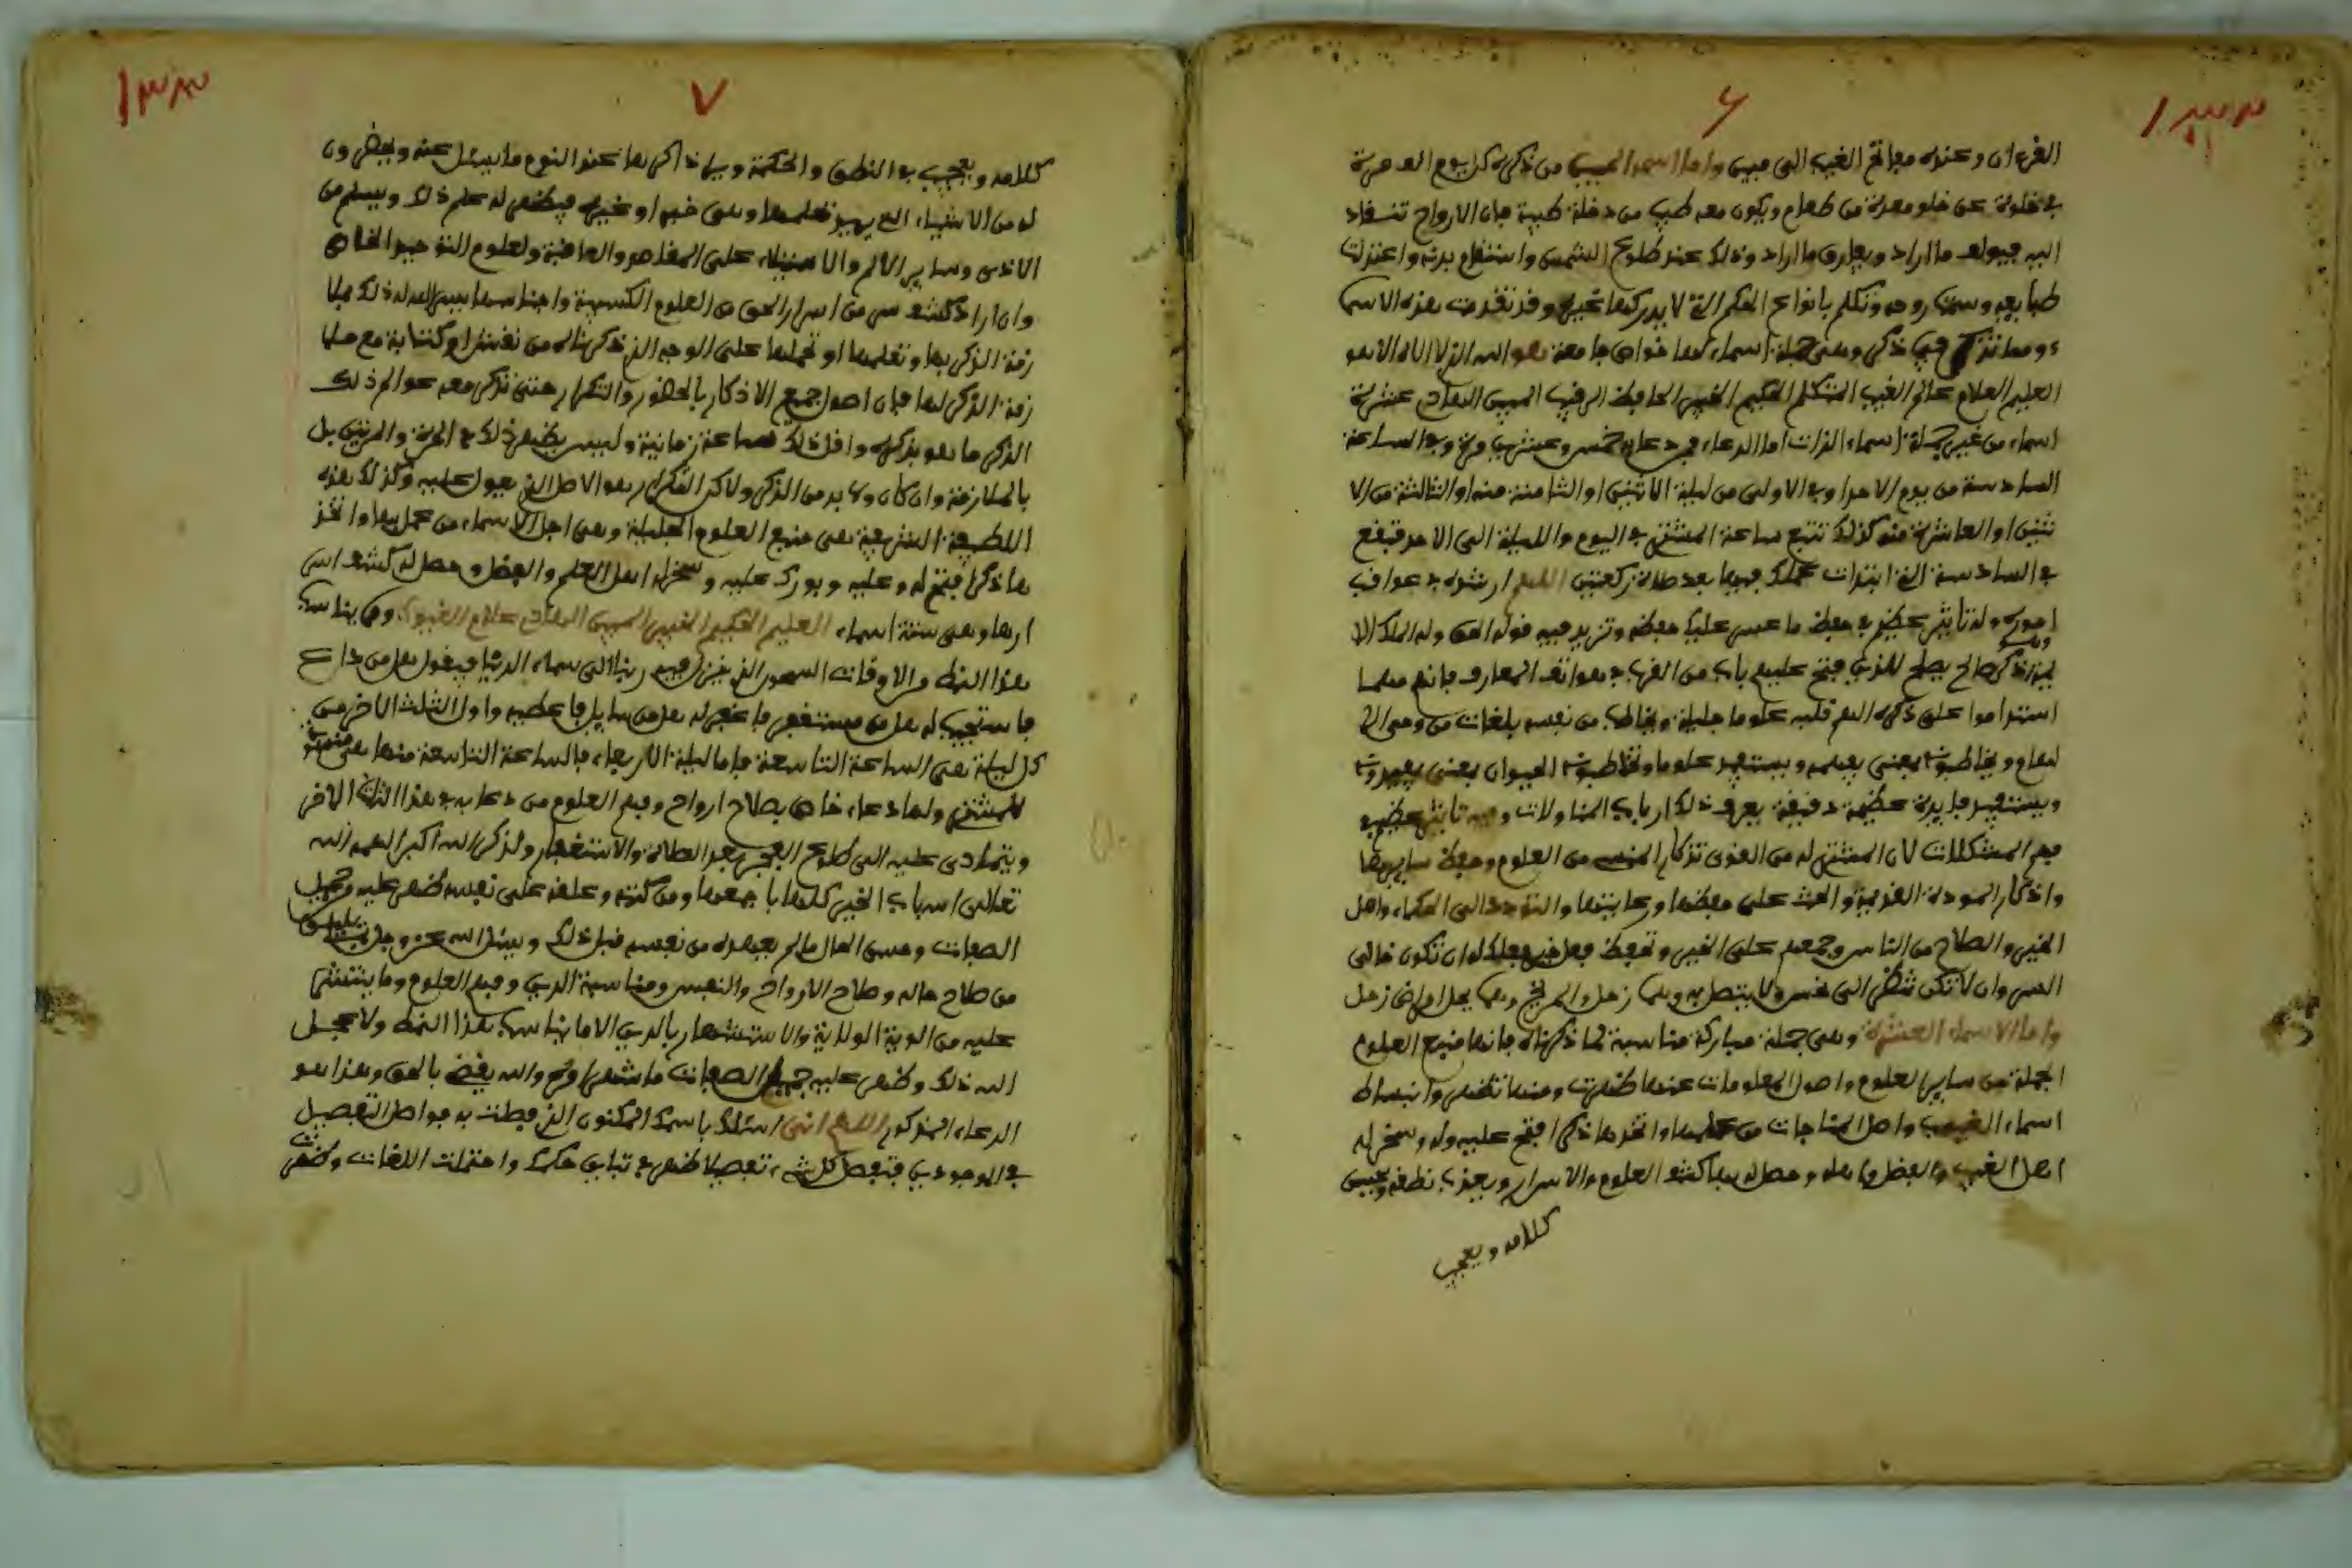 ٦
القرءان وعنده مفاتح الغيب الى مبين واما اسمه المبين من ذكره كل يوم الف مرة
في خلوة عن خلو معدة من طعام ويكون معه طيب من دخنة طيبة فان الارواح تنقاد
اليه فيولف ما اراد ويفارق ما اراد وذلك عند طلوع الشمس واستقام بدنه واعتزلت
طبايعه وسمت روحه وتكلم بانواع الحكم التي لا يدركها غيره وقد تقدمت هذه الاسما
فيما ذكر وهي جملة اسماء لها خواص جامعة هو الله الذي لا اله الا هو
العليم العلام عالم الغيب المتكلم الحكيم الخبير الحافظ الرقيب المبين الهادي عشرة
اسماء من غير جملة اسماء الذات اما الدعاء فيدعا به خمس وعشرين مرة وفي الساعة
السادسة من يوم الاحد او في الاولى من ليلة الاثنين او الثامنة منه او الثالثة من الا
ثنين او العاشرة منه كذلك تتبع ساعة المشتري في اليوم والليلة الى الاحد فيقع
في السادسة التي ابتدات عملك فيها بعد صلاة ركعتين اللهم ارشده في عواقب
اموره وله تاثير عظيم في حفظ ما عسر عليك حفظه وتزيد فيه قوله الحق وله الملك الا
ذكر صالح يصلح للذين فتح عليهم باب من الفهم في هواتف المعارف فانهم مهما
استداموا على ذكره الهم قلبه علوما جليلة ويخاطب من نفسه بلغات من وحي الا
لهام ويخاطبونه بمعنى يفيده ويستفيد علوما وتخاطبونه الحيوان بمعنى يفيدونه
ويستفيد فايدة عظيمة دقيقة يعرف ذلك ارباب المناولات وفيه تاثير عظيم في
فهم المشكلات لان المشتري له من القوى تذكار المنسي من العلوم وحفظ سايرها
واذكار المودة القديمة والحث على حفظها ورعايتها والتودد الى الحكماء واهل
الخير والصلاح من الناس وجمعهم على الخير وتحفظ فعل خير فعلك له ان تكون خالى
السر وان لا تكن تنظر الى نحس ولا يتصل به وهما زحل والمريخ وهما يحل امراض زحل
واما الاسماء العشرة وهي جملة مباركة مناسبة لما ذكرناه فانها منبع العلوم
الجملة من ساير العلوم واصول المعلومات عنها ظهرت ومنها تظهر وانبساط
اسماء الغيوب واصل المناجات من علمها واتخذها ذكرا فتح عليه وله وسخر له
اهل الغيب والفضل وحصل له بها كشف العلوم والاسرار ويعذب نطقه ويحسن
كلامه ويعجب
٧
١٣٣
كلامه ويعجب في النطق والحكمة ويرا ذاكرها عند النوم ما يسئل عنه ويحضرون
له من الاشياء التي يريد تعلمها وهي خير او غيره فيظهر له علم ذلك ويسلم من
الاذى وساير الالم والاستيلاء على المقاصد والعافية ولعلوم التوحيد الخاص
وان اراد كشف سر من اسرار الحق من العلوم الكسبية واجناسها يسر الله له ذلك
زمة الذكر بها وتعلمها او تحملها على الوجه الذي ذكرناه من نقش او كتابة مع ملا
زمة الذكر لها فان اصول جميع الاذكار بالحضور والتكرار حتى تذكر معه عوالم ذلك
الذكر ما هو يذكره واقل ذلك ساعة زمانية وليس يظهر ذلك في المرة والمرتين بل
بالملازمة وان كان ولا بد من الذكر ولاكن التكرار هو الاصل الذي يعول عليه وكذلك هذه
اللطيفة الشريفة هي منبع العلوم الجليلة وهي اجل الاسماء من عمل بها واتخذ
ها ذكرا فتح له وعليه وبورك عليه وسخر له اهل العلم والفضل وحصل له كشف اسر
ارها وهي ستة اسماء العليم الحكيم الخبير المبين الهادي علام الغيوب ومن يناسبه
هذا النمط من الاوقات السحور الذي ينزل فيه ربنا الى سماء الدنيا فيقول هل من داع
فاستجيب له هل من مستغفر فاغفر له هل من سايل فاعطيه واول الثلث الاخر من
كل ليلة هي الساعة التاسعة فاما ليلة الاربعاء فالساعة التاسعة منها هي
للمشتري ولها دعاء خاص بصلاح ارواح وفهم العلوم من دعا به في هذا الثلث الاخر
ويتمادى عليه الى طلوع الفجر بعد الصلاة والاستغفار ولذكر الله اكبر الهمه الله
تعالى اسباب الخير كلها باجمعها ومن كتبه وعلقه على نفسه ظهر عليه وجميل
الصفات وحسن الحال ما لم يعهده من نفسه قبل ذلك ويسئل الله عز وجل
من صلاح حاله وصلاح الارواح والنفس ومناسبة الدين وفهم العلوم وما ينتشر
عليه من الوية الولاية والاستشعار بالدين الا ما يناسب هذا النمط ولا عجل
الله ذلك وظهر عليه جميل الصفات ما شهر وتم والله يقضي بالحق وهذا هو
الدعاء المذكور اللهم انى اسئلك باسمك المكنون الذي فصلت به فواصل التفصيل
في الوجودين فتفصل كل شيء تفصيلا ظهر في تباين حكمك واختلفت اللغات وظهرت